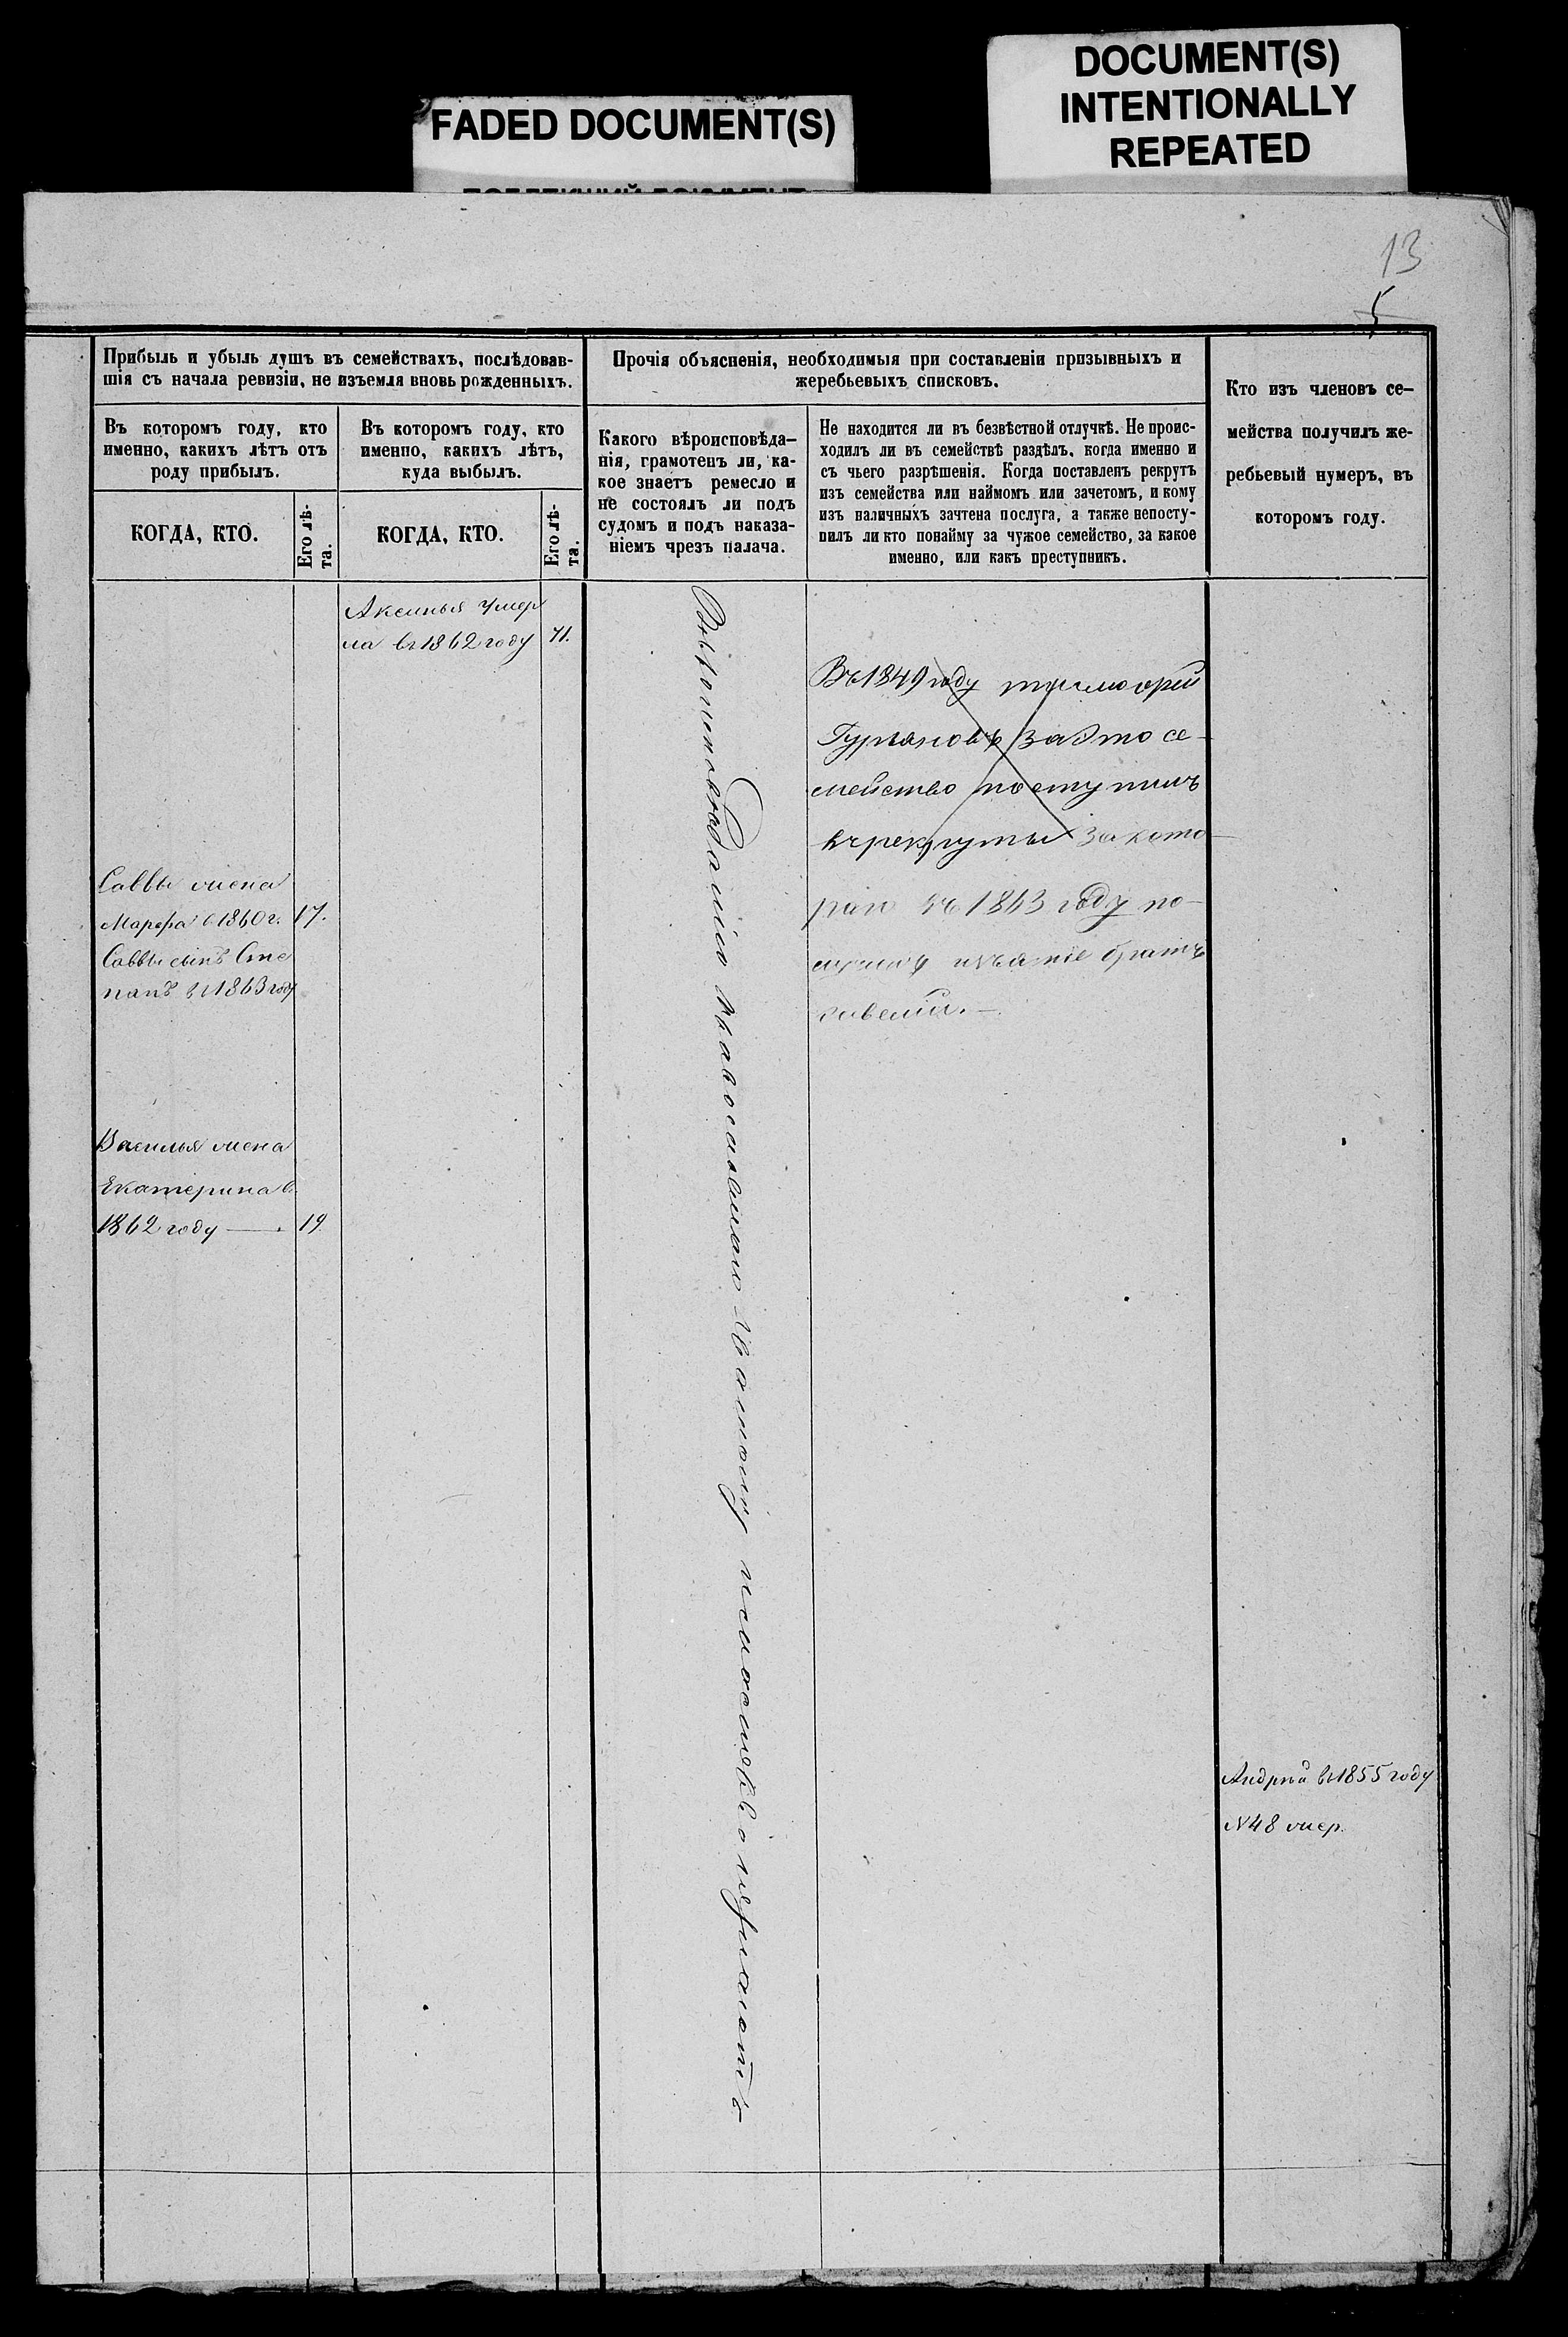 DOCUMENT(S)
INTENTIONALLY
REPEATED
FADED DOCUMENT(S)
13
5
Прибыль и убыль душъ въ семействахъ, послѣдовав-
шія съ начала ревизіи, не изъемля вновь рожденныхъ.
Въ которомъ году, кто
именно, какихъ лѣтъ отъ
роду прибылъ.
КОГДА, КТО.
Его лѣ-
та.
Въ которомъ году, кто
именно, какихъ лѣтъ,
куда выбылъ.
КОГДА, КТО.
Его лѣ-
та.
Прочія объясненія, необходимыя при составленіи призывныхъ и
жеребьевыхъ списковъ.
Какого вѣроисповѣда-
нія, грамотенъ ли, ка-
кое знаетъ ремесло и
не состоялъ ли подъ
судомъ и подъ наказа-
ніемъ чрезъ палача.
Не находится ли въ безвѣстной отлучкѣ. Не проис-
ходилъ ли въ семействѣ раздѣлъ, когда именно и
съ чьего разрѣшенія. Когда поставленъ рекрутъ
изъ семейства или наймомъ или зачетомъ, и кому
изъ наличныхъ зачтена послуга, а также непосту-
пилъ ли кто понайму за чужое семейство, за какое
именно, или какъ преступникъ.
Кто изъ членовъ се-
мейства получилъ же-
ребьевый нумеръ, въ
которомъ году.
Аксинья умер
ла въ 1862 году 71.
Саввы жена
Марфа в 1860 г. 17.
Саввы сынъ Сте
панъ въ 1863 году
Василья жена
Екатерина в
1862 году 19.
Вѣроисповѣданія православнаго
Въ 1849 году
Гурьяновъ за это се-
мейство поступилъ
въ рекруты за кото-
раго въ 1863 году по-
братъ
Андрей въ 1855 году
N 48 жер.